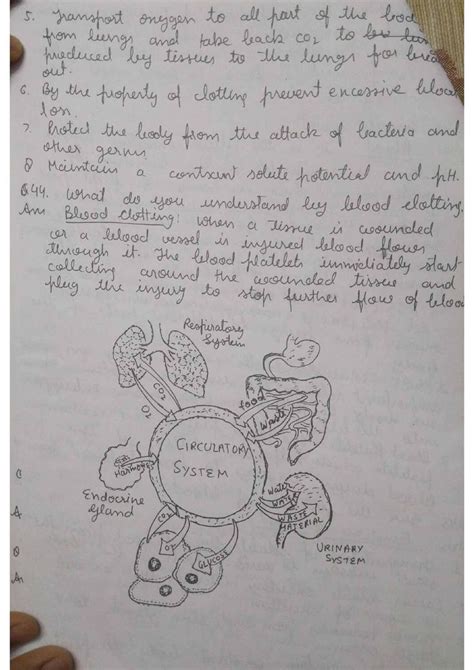 5. Transport oxygen to all part of the bod
from lungs and take back CO2 to
produced by tissues to the lungs for brea
out.
6. By the property of clotting prevent excessive bloo
loss.
7. Protect the body from the attack of bacteria and
other germs.
8 Maintain a constant solute potential and pH.
Q44. What do you understand by blood clotting.
Ans Blood clotting: When a tissue is wounded
or a blood vessel is injured blood flows
through it. The blood platelets immediately start
collecting around the wounded tissue and
plug the injury to stop further flow of blood
Respiratory
System
CO2
O2
Food
Waste
CIRCULATORY
SYSTEM
Harmone
Endocrine
Gland
Water
Water
WASTE
MATERIAL
URINARY
SYSTEM
CO2
O2
GLUCOSE
A
Q
An